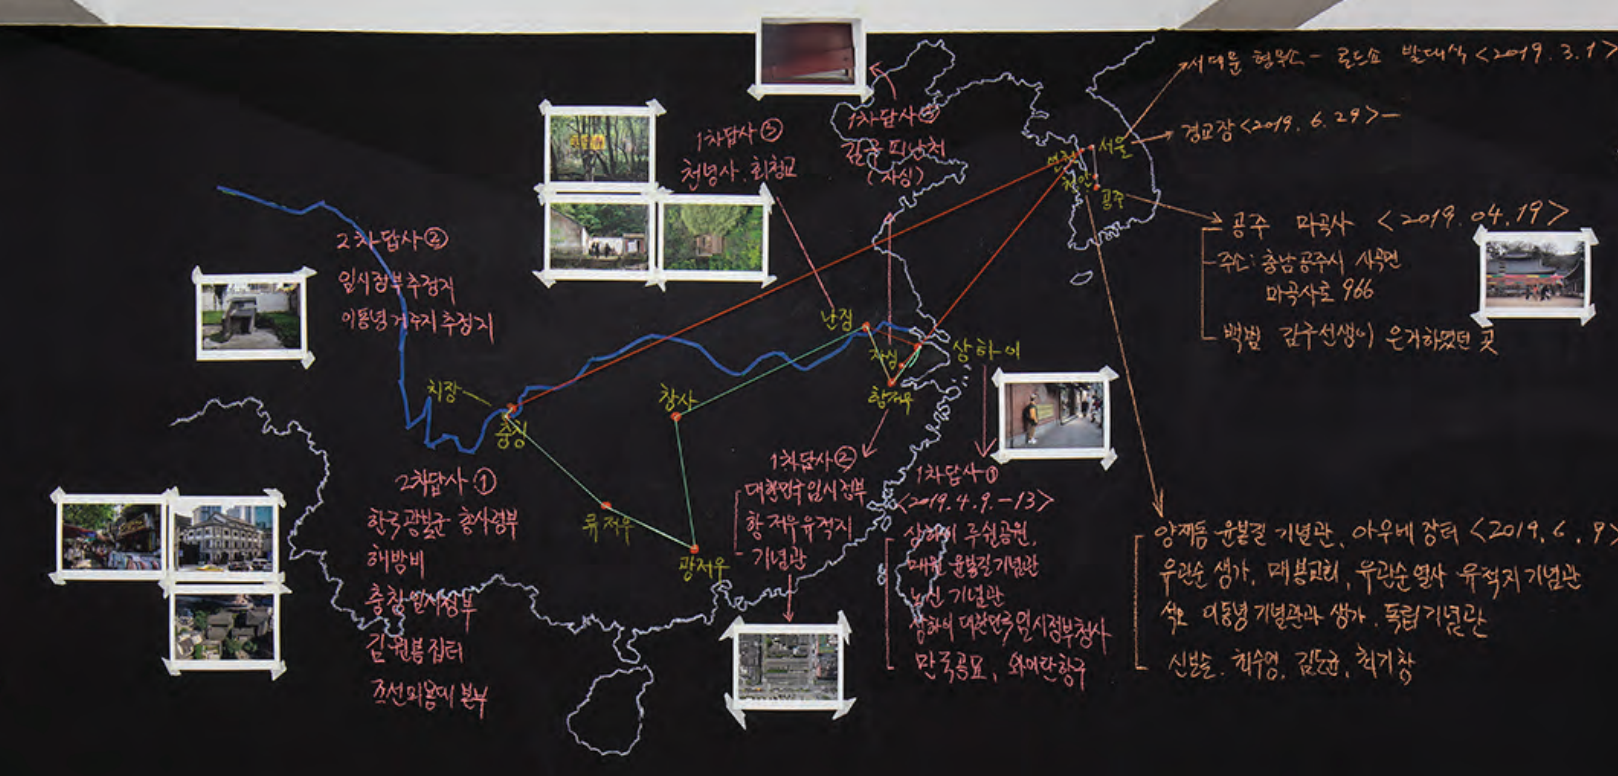 서대문 형무소 - 로드쇼 발대식 <2019. 3. 1>
경교장 <2019. 6. 29> -
1차답사 ④
김구 피난처
(자싱)
1차답사 ③
천녕사. 회청교
서울
천안
공주
공주 마곡사 <2019. 04. 19>
주소: 충남 공주시 사곡면
마곡사로 966
백범 김구선생이 은거하였던 곳
2차답사 ②
임시정부 추정지
이동녕 거주지 추정지
난징
자싱
상하이
항저우
치장
충칭
창사
류저우
광저우
2차답사 ①
한국광복군 총사령부
해방비
충칭임시정부
김원봉 집터
조선의용대 본부
1차답사 ②
대한민국 임시정부
항저우 유적지
기념관
1차답사 ①
<2019. 4. 9. -13>
상하이 루쉰공원,
매원 윤봉길 기념관
노신 기념관
상하이 대한민국 임시정부청사
만국공묘, 와이탄항구
양재동 윤봉길 기념관, 아우내 장터 <2019. 6. 9>
유관순 생가, 매봉교회, 유관순열사 유적지 기념관
석오 이동녕 기념관과 생가. 독립기념관
신보슬. 최수영,